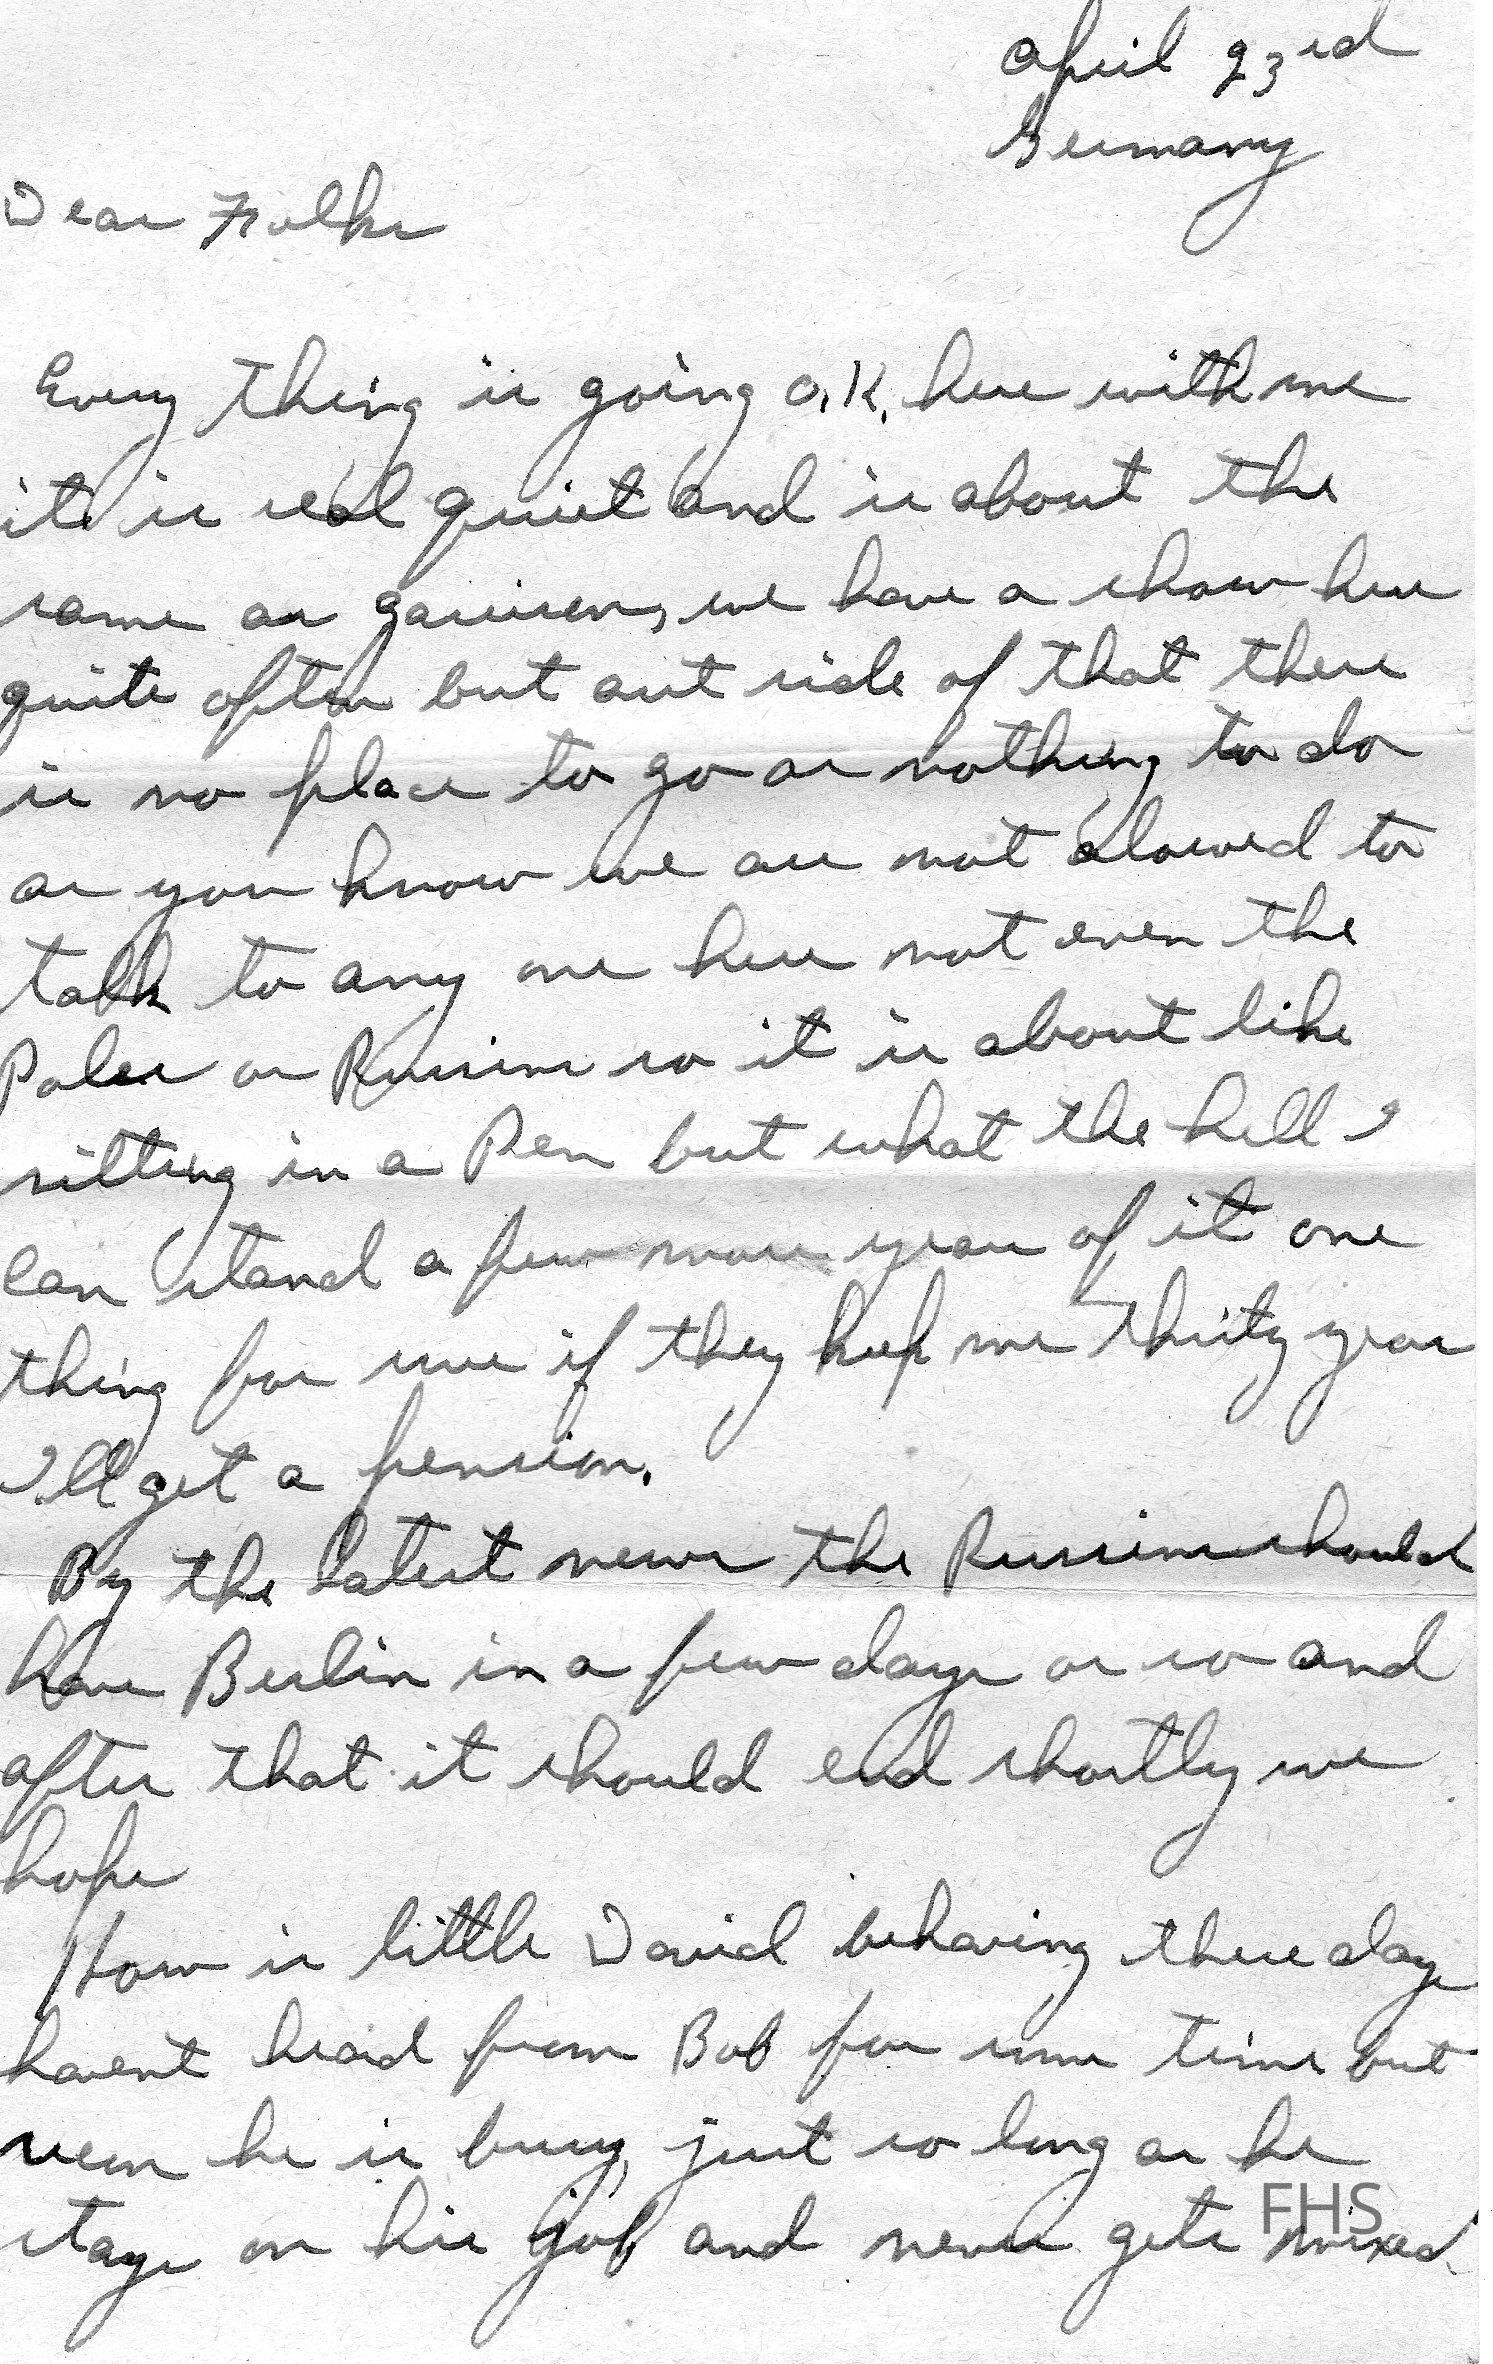 April 23rd
Germany
Dear Folks
Every thing is going O.K. here with me
it is real quiet and is about the
same as garrison, we have a show here
quite often but out side of that there
is no place to go or nothing to do
as you know we are not alowed to
talk to any one here not even the
Poles or Russians so it is about like
sitting in a Pen but what the hell I
can stand a few more years of it one
thing for sure if they keep me thirty years
I'll get a pension.
By the latest news the Russians should
have Berlin in a few days or so and
after that it should end shortly we
hope
How is little David behaving these days
havent heard from Bob for some time but
he is busy, just so long as he
stays on his job and never gets mixed
FHS